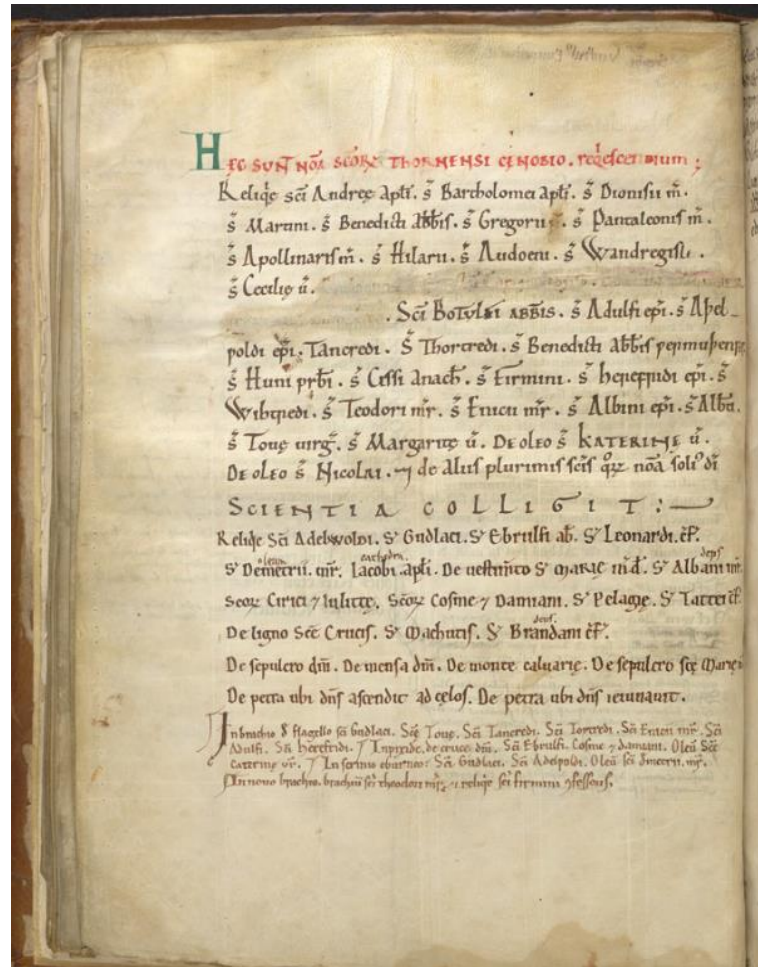 HEC SUNT NOĀ SCŌRꝜ THORNENSI CĘNOBIO. reqͥescentium;
Reliqͥe scī Andreę aptī. s̄ Bartholomei aptī. s̄ Dionisii m̄.
s̄ Martini. s̄ Benedicti abb̄is. s̄ Gregorii. s̄ Pantaleonis m̄.
s̄ Apollinaris m̄. s̄ Hilarii. s̄ Audoeni. s̄ Wandregisili.
s̄ Cecilię ū.
. SCĪ BOTULFI ABB̄IS. s̄ Adulfi ep̄i. s̄ Aþel_
poldi ep̄i. Tancredi. S̄ Thortredi. s̄ Benedicti abb̄is
s̄ Huni prb̄i. s̄ Cissi anach̄. s̄ Firmini. s̄ herefridi ep̄i. s̄
Wihtredi. s̄ Teodori m̄r. s̄ Enicii m̄r. s̄ Albini ep̄i. s̄ Albū.
s̄ Touę uirḡ. s̄ Margaritę ū. DE OLEO s̄ KATERINE ū.
DE OLEO s̄ NICOLAI. ⁊ de aliis plurimis scīs qͦrꝝ noā soliꝰ dī
SCIENTIA COLLIGIT:
Reliqͥe Scī Adelwoldi. Sͥ Gudlaci. Sͥ Ebrulfi ab̄. Sͥ Leonardi. c̄f.
oleum cathedra. deps
Sͥ Demetrii. m̄r. Iacobi. aptī. De uestim̄to Sͥ MARIĘ Sͥ Albani m̄r.
Scōrꝝ Cirici ⁊ Iulittę. Scōrꝝ Cosme ⁊ Damiani. Sͥ Pelagię. Sͥ c̄f.
dens.
De ligno Scē Crucis. Sͥ Machutis. Sͥ Brandani c̄f.
De sepulcro dn̄i. De mensa dn̄i. De monte caluarię. De sepulcro scę Marię
De petra ubi dn̄s ascendit ad cęlos. De petra ubi dn̄s ieiunauit.
In brachio flagello scī Gudlaci. Scę Touę. Scī Tancredi. Scī Tortredi. Scī Enicii m̄r. Scī
Adulfi. Scī Herefridi. In pixide. de cruce dn̄i. Scī Ebrulfi. Cosme ⁊ damiani. Oleū Scē
Caterinę ūr. In scrinio eburneo: Scī Gudlaci. Scī Adelpoldi. Oleū scī dmetrii. m̄r.
In nouo brachio. brachiū scī theodori m̄r ⁊ reliqͥe scī firmini ꝯfessoris.